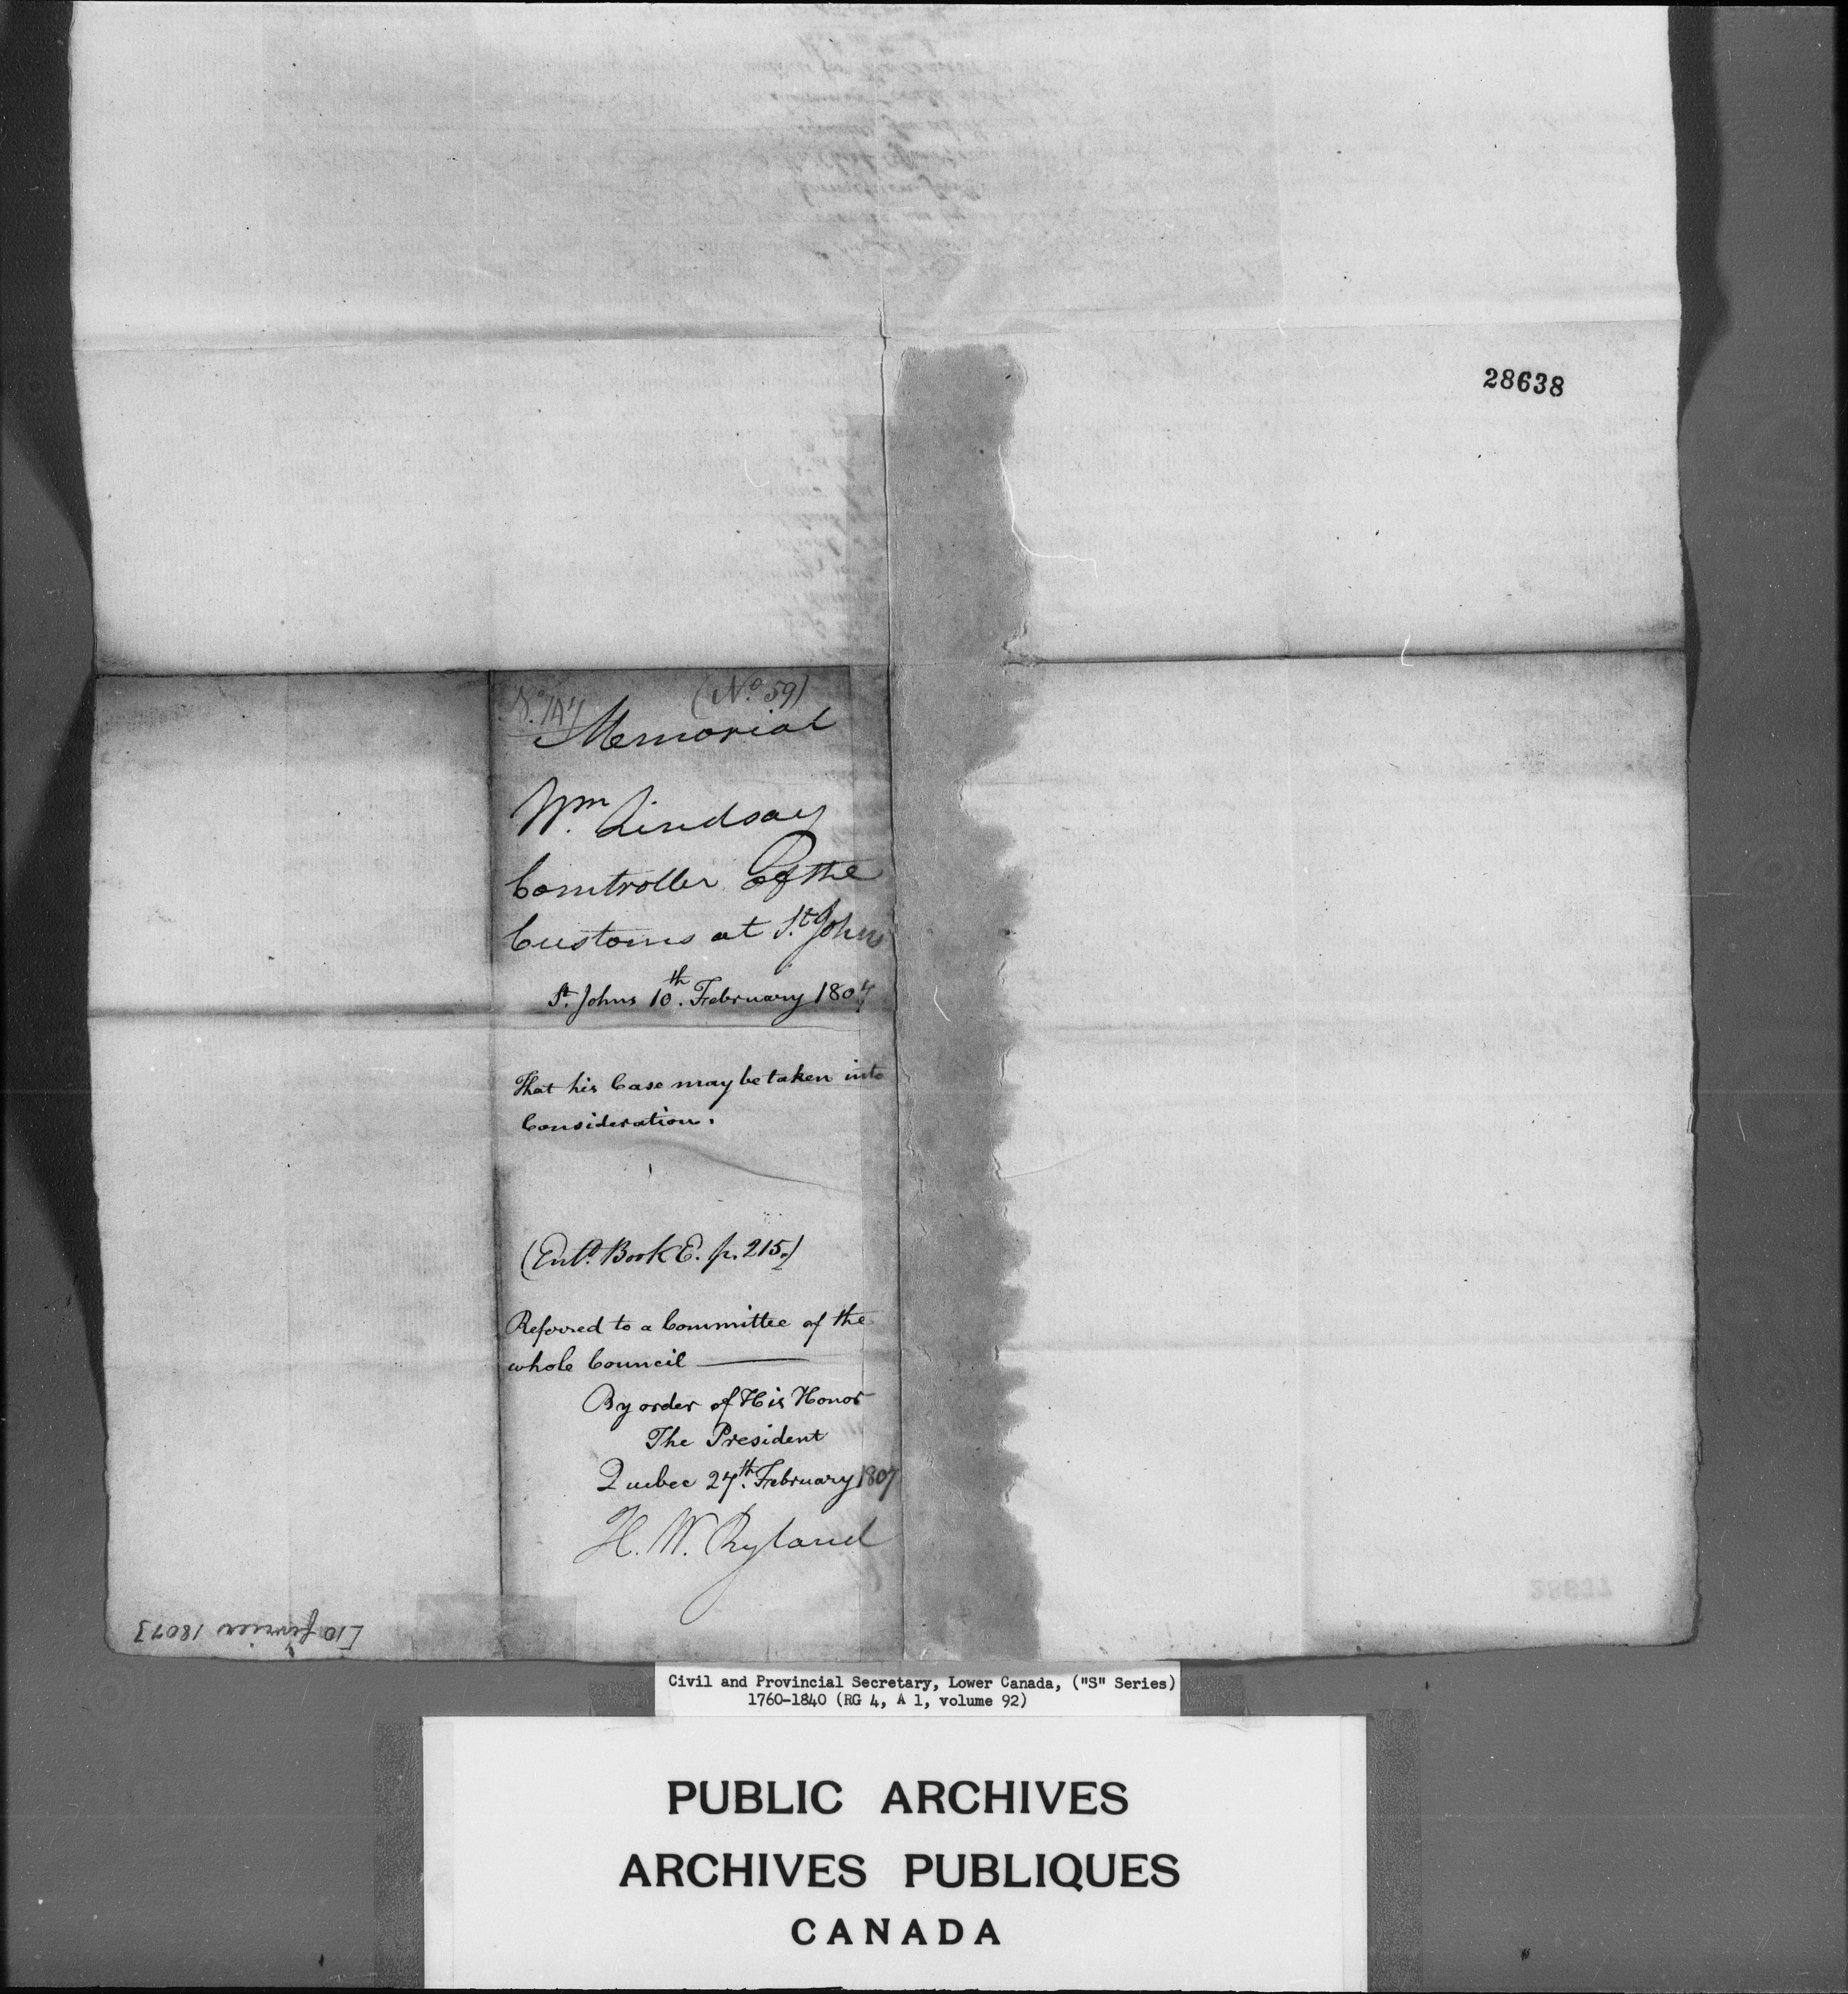 28638
(No. 59)
Memorial
Wm. Lindsay
Comtroller of the
Customs at St. Johns
St. Johns 10th. February 1807
That his Case may be taken into
Consideration.
(Entd. Book E. p. 215.)
Referred to a Committee of the
whole Council
By order of His Honor
The President
Quebec 27th. February 1807
H. W. Ryland
[10 février 1807]
Civil and Provincial Secretary, Lower Canada, ("S" Series)
1760-1840 (RG 4, A 1, volume 92)
PUBLIC ARCHIVES
ARCHIVES PUBLIQUES
CANADA